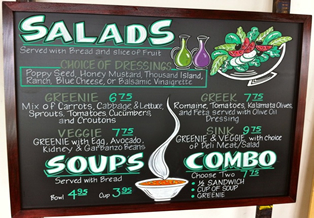 SALADS
Served with Bread and slice of Fruit
CHOICE OF DRESSING
Poppy Seed, Honey Mustard, Thousand Island,
Ranch, Blue Cheese, or Balsamic Vinaigrette
GREENIE 6.75
Mix of Carrots, Cabbage & Lettuce,
Sprouts, Tomatoes, Cucumbers,
and Croutons
VEGGIE 7.75
GREENIE with Egg, Avocado,
Kidney & Garbanzo Beans
GREEK 7.75
Romaine, Tomatoes, Kalamata Olives,
and Feta served with Olive Oil
Dressing
SINK 9.75
GREENIE & VEGGIE with choice
of Deli Meat/Salad
SOUPS
Served with Bread
Bowl 4.95 Cup 3.95
COMBO
Choose Two
½ SANDWICH
CUP OF SOUP
GREENIE